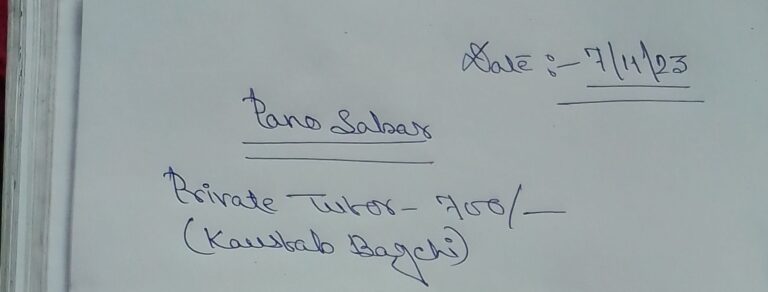 Date :- 7/11/23
Pano Sabar
Private Tutor - 700/-
(Kaustab Bagchi)